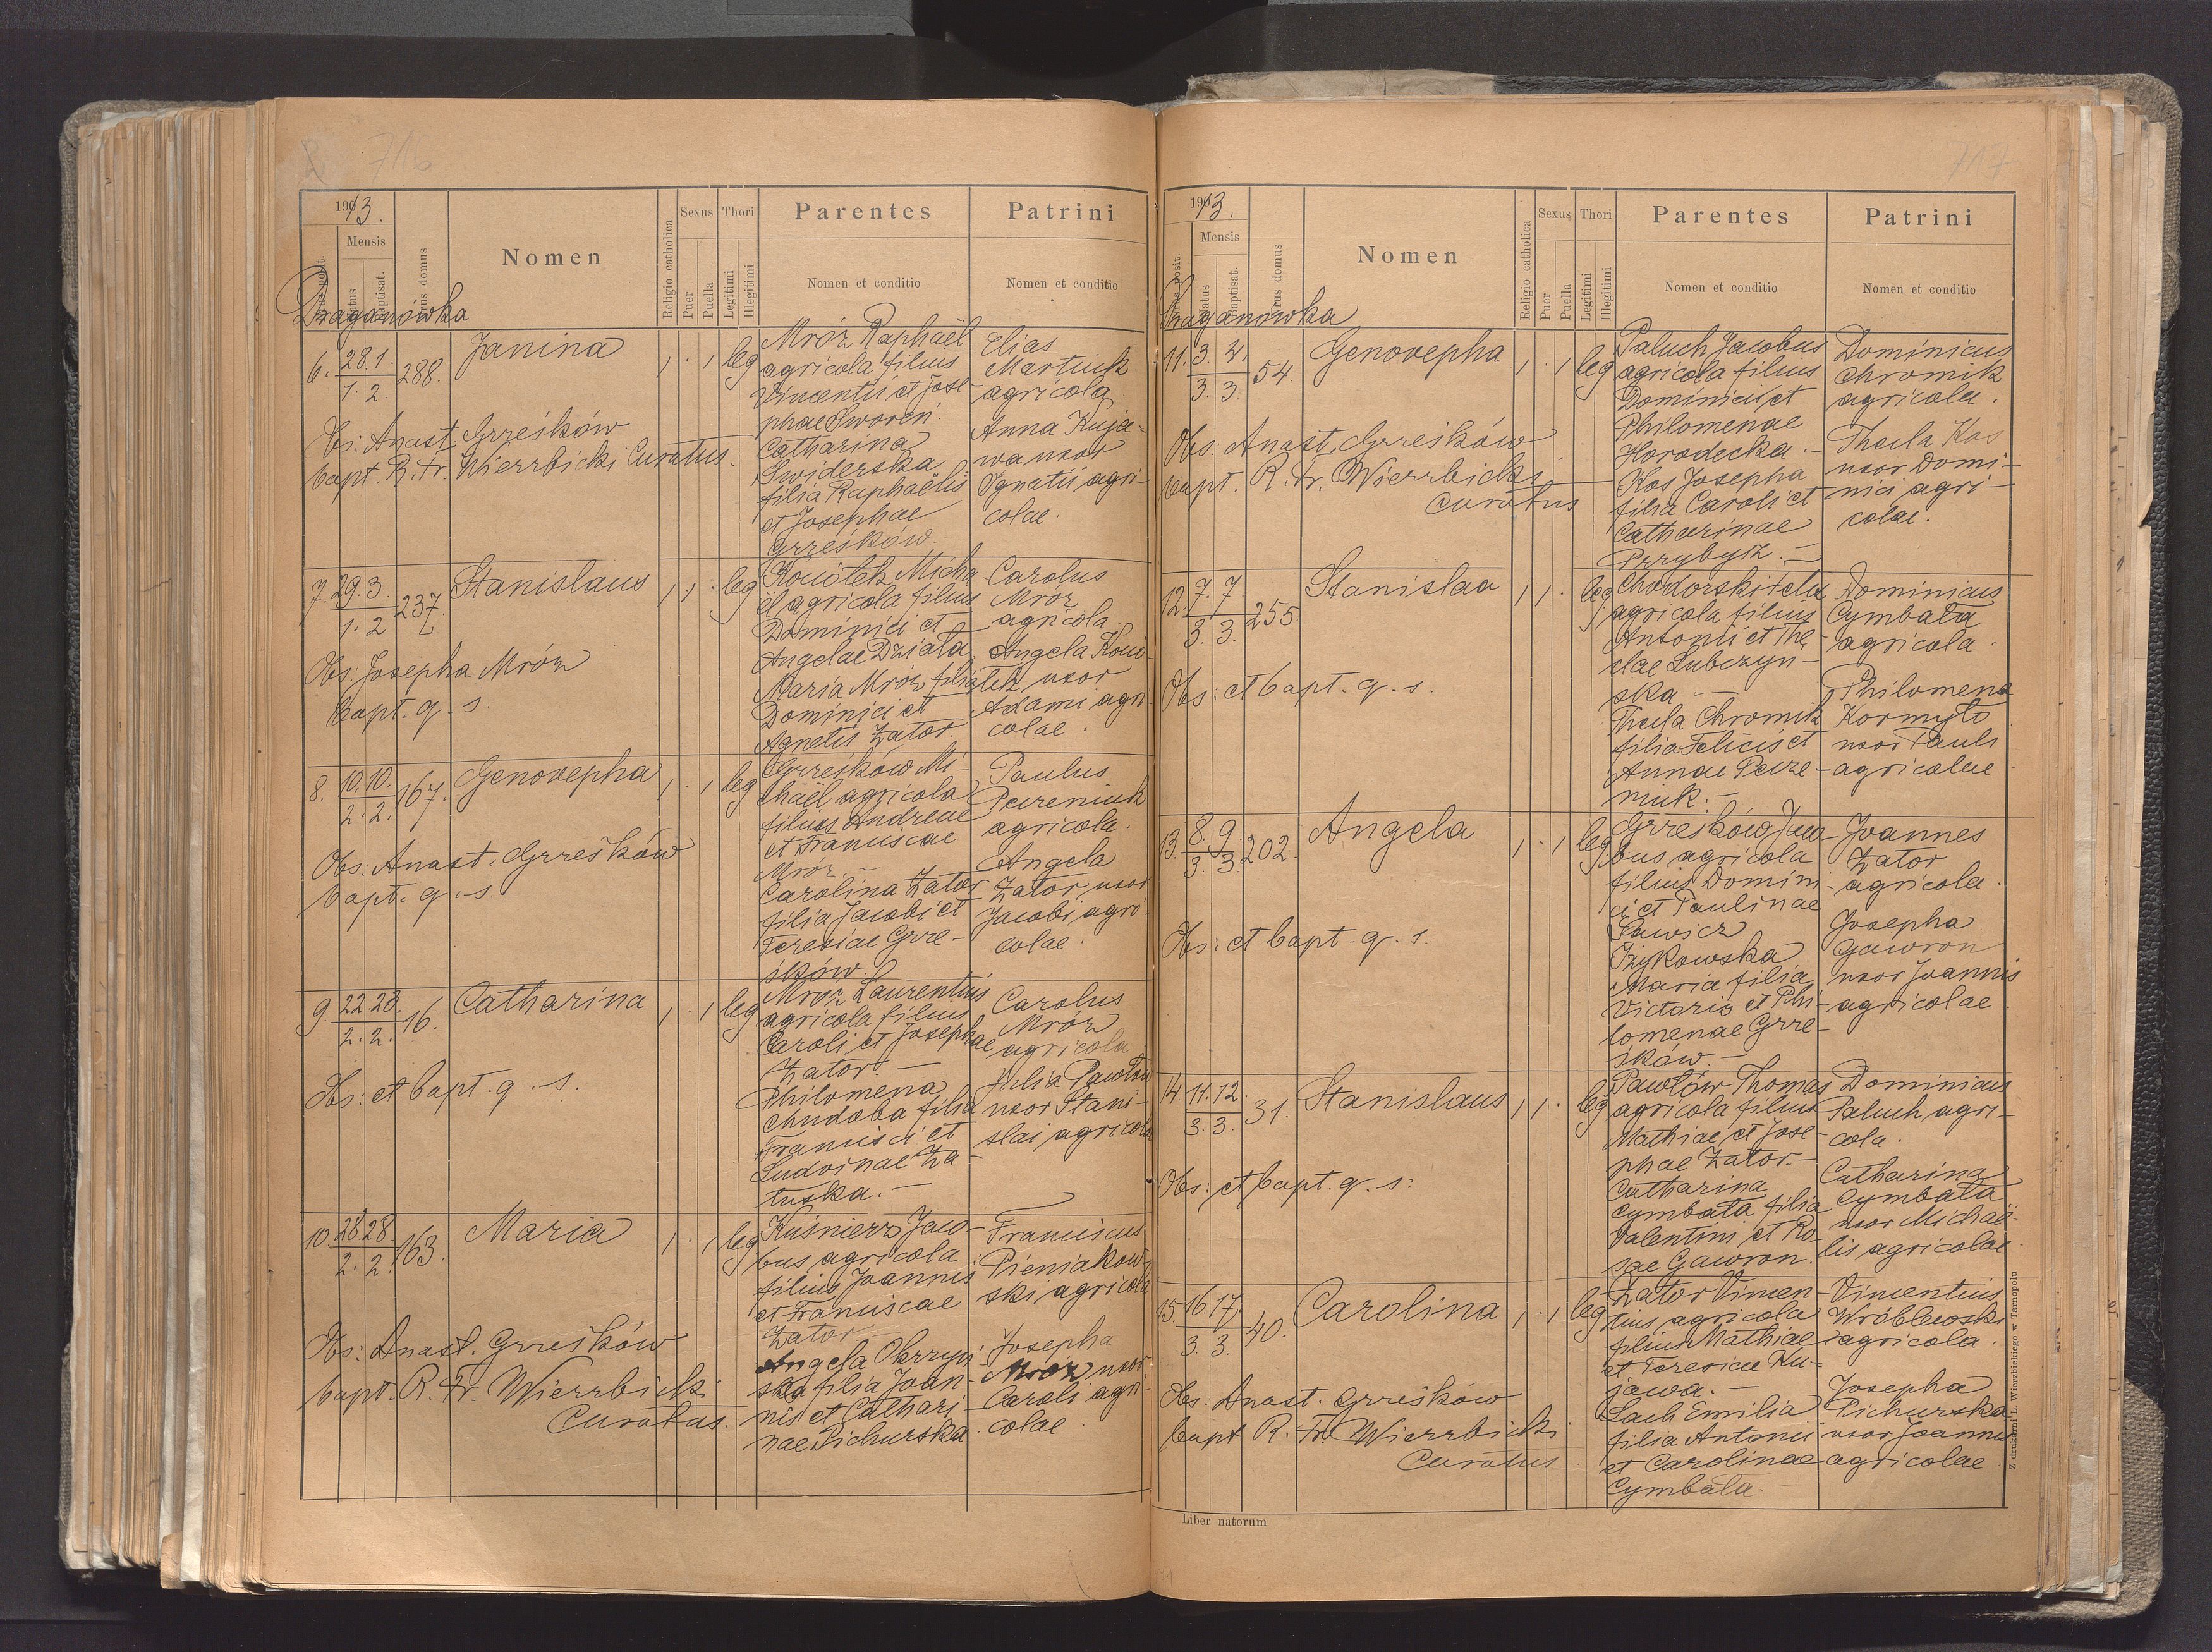 716
1913.
Mensis
Nrus posit.
Natus
Baptisat.
Nrus domus
Nomen
Religio catholica
Sexus
Puer
Puella
Thori
Legitimi
Illegitimi
Parentes
Nomen et conditio
Patrini
Nomen et conditio
Draganówka
6. 28.1. 1.2. 288. Janina 1 . 1 leg
Mróz Raphaël
agricola filius
Vincentii et Jose-
phae Sworeń.
Catharina
Swiderska
filia Raphaëlis
et Josephae
Grześków
Elias
Martiuk
agricola
Anna Kuja-
wa uxor
Ignatii agri-
colae.
Obs: Anast. Grześków
bapt. R. Fr. Wierzbicki Curatus.
7. 29.3. 1.2 237. Stanislaus 1 1 . leg
Koniotek Micha
ël agricola filius
Dominici et
Angelae Dziala
Maria Mróz filia
Dominici et
Agnetis Zator.
Carolus
Mróz
agricola.
Angela Konio-
tek uxor
Adami agri-
colae.
Obs: Josepha Mróz
bapt. q. s.
8. 10.10. 2.2. 167. Genovepha 1 . 1 leg
Grześków Mi-
chaël agricola
filius Andreae
et Franciscae
Mróz. —
Carolina Zator
filia Jacobi et
Teresiae Grze-
śków.
Paulus
Peireniuk
agricola.
Angela
Zator uxor
Jacobi agri-
colae.
Obs: Anast. Grześków
bapt. q. s.
9. 22.23. 2.2. 16. Catharina 1 . 1 leg
Mróz Laurentius
agricola filius
Caroli et Josephae
Zator. —
Philomena
Chudoba filia
Francisci et
Ludvinae Za-
tuska. —
Carolus
Mróz
agricola
Julia Pawłów
uxor Stani-
slai agricola
Obs: et bapt. q. s.
10. 28.28. 2.2. 163. Maria 1 . 1 leg
Kuśnierz Jaco-
bus agricola
filius Joannis
et Franciscae
Zator —
Angela Okrzyń
ska filia Joan-
nis et Cathari-
nae Pichurska.
Franciscus
Pieniakow-
ski agricola
Josepha
Mróz uxor
Caroli agri-
colae.
Obs: Anast. Grześków
bapt. R. Fr. Wierzbicki
Curatus.
717
1913.
Mensis
Nrus posit.
Natus
Baptisat.
Nrus domus
Nomen
Religio catholica
Sexus
Puer
Puella
Thori
Legitimi
Illegitimi
Parentes
Nomen et conditio
Patrini
Nomen et conditio
Draganówka
11. 3.4. 3.3. 54. Genovepha 1 . 1 leg
Paluch Jacobus
agricola filius
Dominici et
Philomenae
Horodecka. —
Kos Josepha
filia Caroli et
Catharinae
Przybysz. —
Dominicus
Chromik
agricola.
Thecla Kos
uxor Domi-
nici agri-
colae.
Obs: Anast. Grześków
bapt. R. Fr. Wierzbicki
Curatus
12. 7.7 3.3. 255. Stanislaa 1 1 . leg
agricola filius
Antonii et The-
clae Lubczyn-
ska. —
Thecla Chromik
filia Felicis et
Annae Peire-
niuk. —
Dominicus
Cymbała
agricola.
Philomena
Kormyło
uxor Pauli
agricolae
Obs: et bapt. q. s.
13. 8.9. 3.3. 202. Angela 1 . 1 leg
Grześków Jaco-
bus agricola
filius Domini-
ci et Paulinae
Sawicz
Zzykowska
Maria filia
Victoris et Phi-
lomenae Grze-
śków. —
Joannes
Zator
agricola.
Josepha
Gawron
uxor Joannis
agricolae.
Obs: et bapt. q. s.
14. 11.12. 3.3. 31. Stanislaus 1 1 . leg
Pawłów Thomas
agricola filius
Mathiae et Jose-
phae Zator. —
Catharina
Cymbała filia
Valentini et Ro-
sae Gawron.
Dominicus
Paluch agri-
cola.
Catharina
Cymbała
uxor Michaë-
lis agricolae.
Obs: et bapt. q. s:
15. 16.17. 3.3. 40. Carolina 1 . 1 leg
Zator Vincen-
tius agricola
filius Mathiae
et Teresiae Ku-
jawa. —
Lach Emilia
filia Antonii
et Carolinae
Cymbała —
Vincentius
Wróblewski
agricola.
Josepha
Pichurska
uxor Joannis
agricolae
Obs: Anast. Grześków
bapt R. Fr. Wierzbicki
Curatus
Liber natorum
Z drukarni L. Wierzbickiego w Tarnopolu